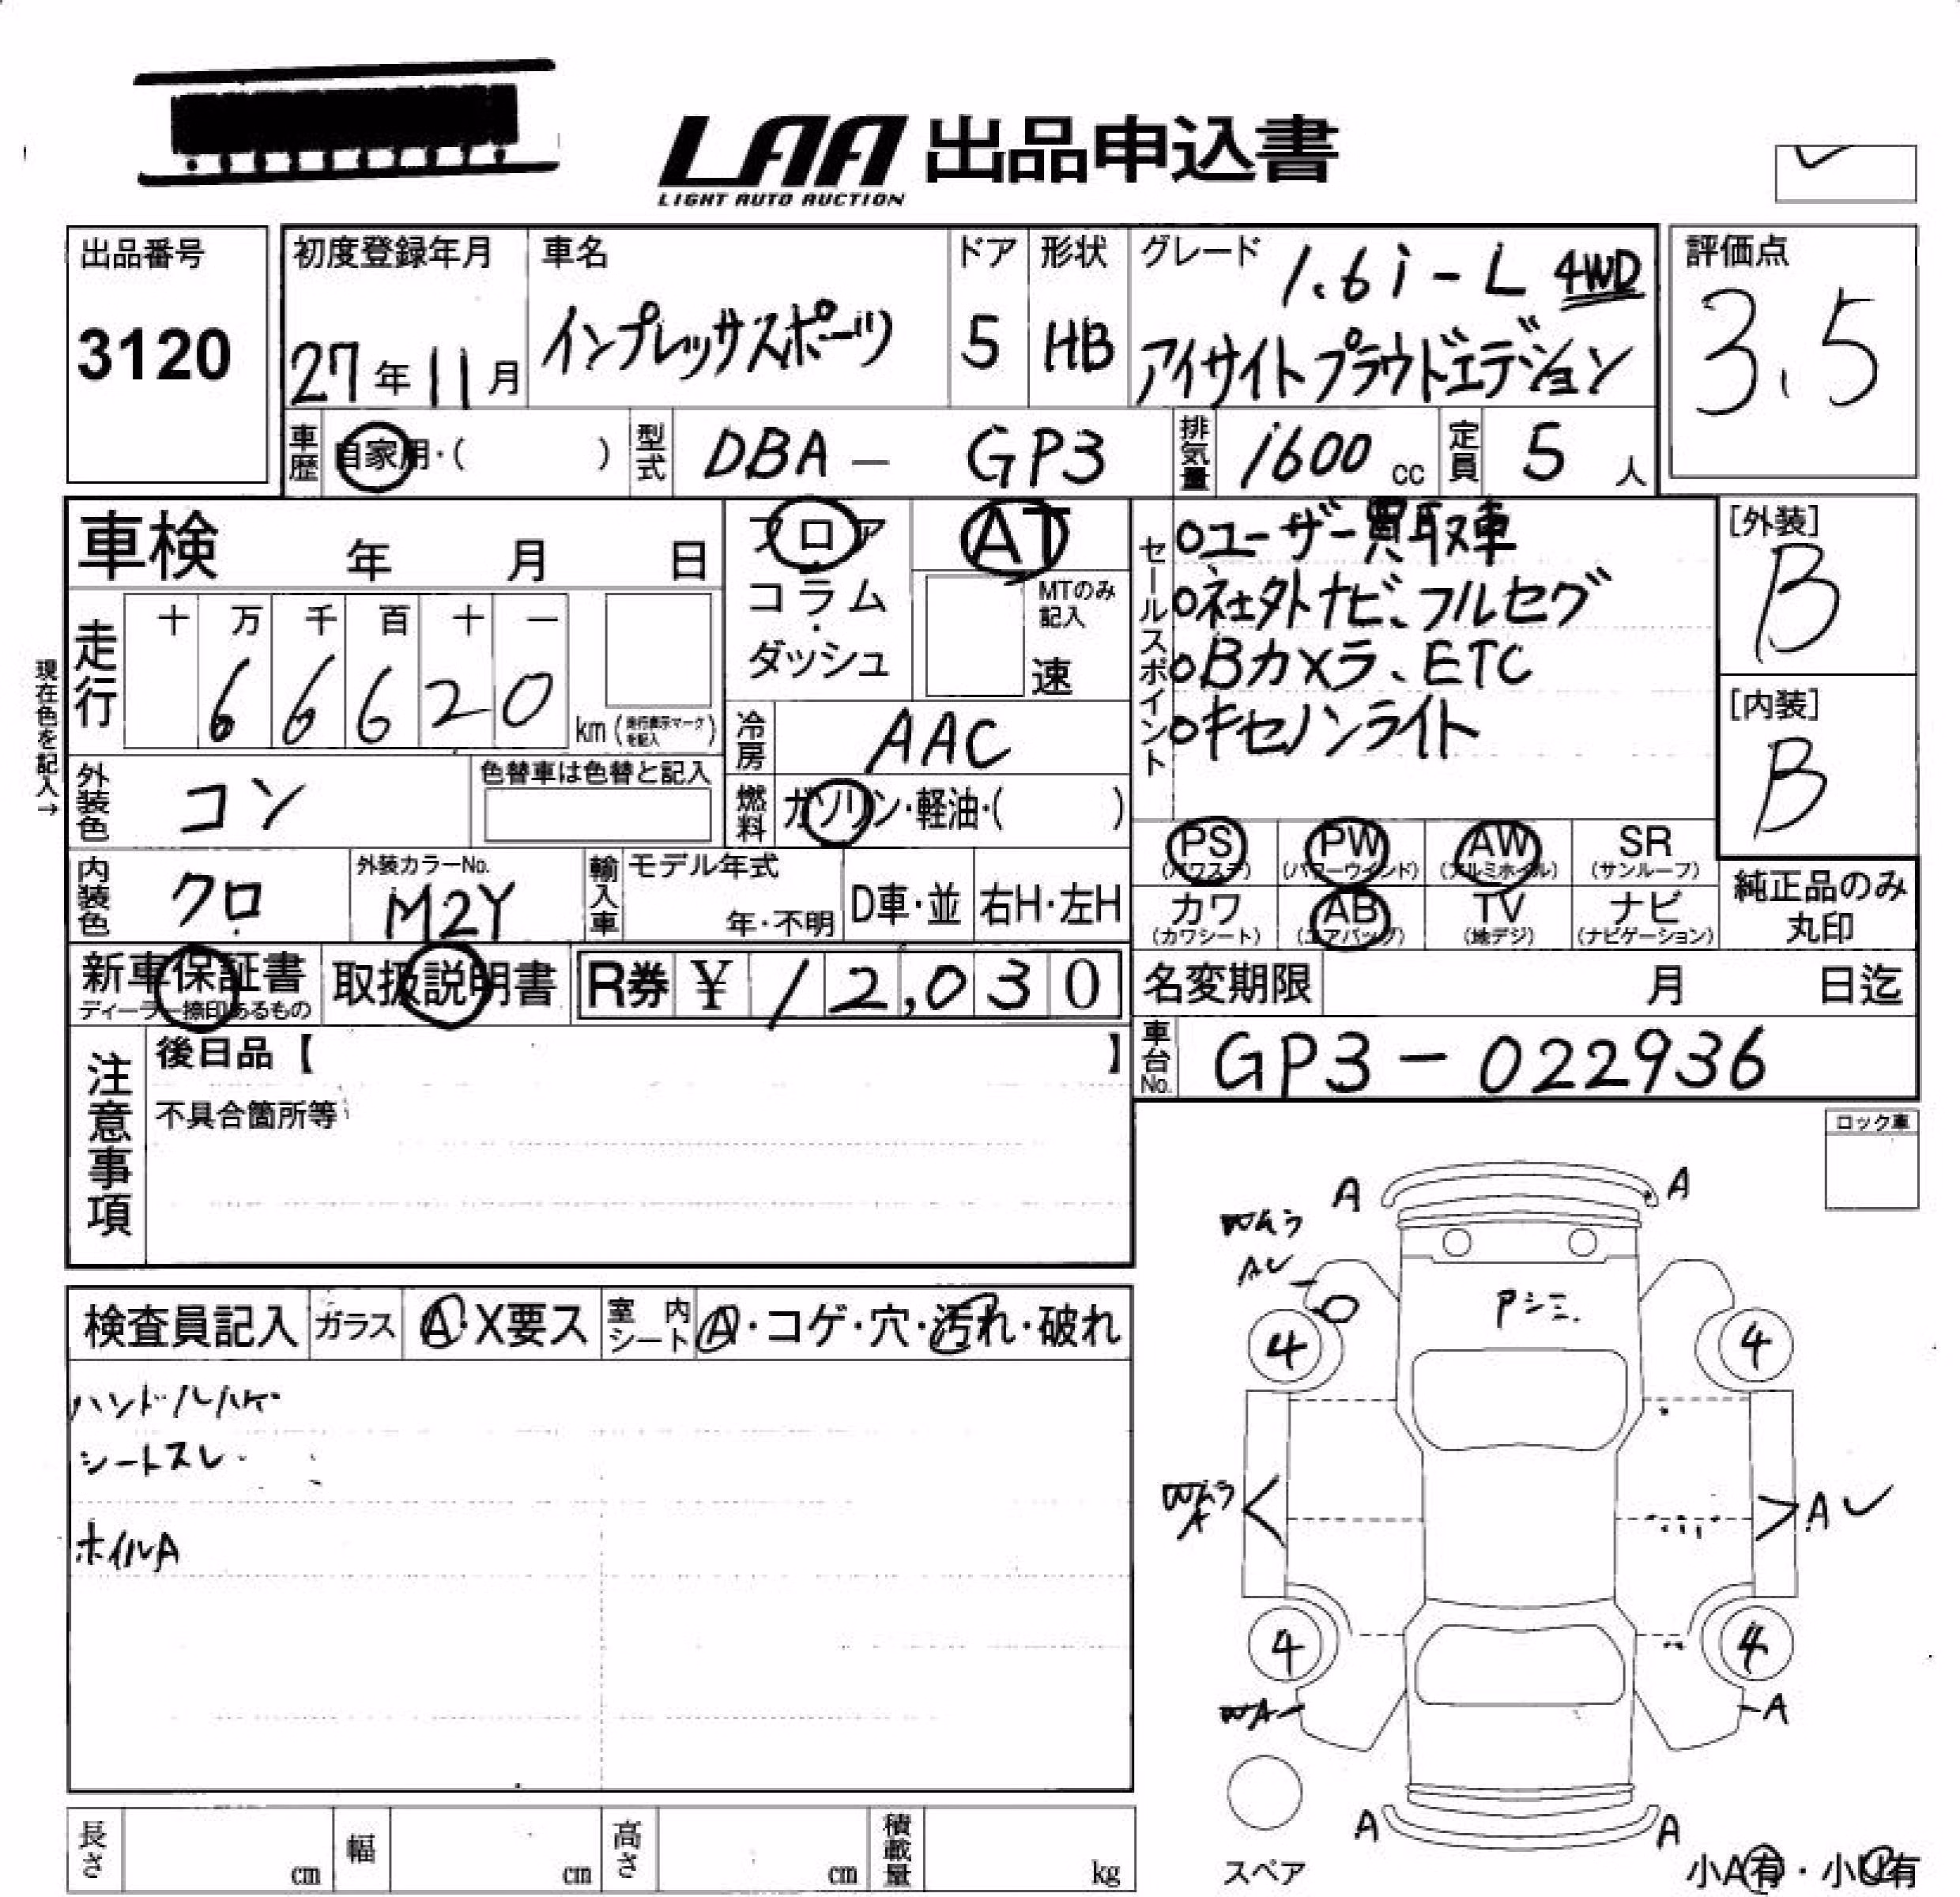 LAA 出品申込書
LIGHT AUTO AUCTION
出品番号
3120
初度登録年月
27年11月
車名
インプレッサスポーツ
ドア
5
形状
HB
グレード
1.6i-L 4WD
アイサイトプラウドエディション
評価点
3.5
車歴 自家用・( )
型式 DBA - GP3
排気量 1600 cc
定員 5 人
現在色を記入→
車検 年 月 日
走行
十 万 千 百 十 一
6 6 6 2 0
km (走行表示マークを記入)
外装色 コン
色替車は色替と記入
内装色 クロ
外装カラーNo.
M2Y
フロア
コラム
・
ダッシュ
AT
MTのみ記入
速
冷房 AAC
燃料 ガソリン・軽油・( )
輸入車
モデル年式
年・不明
D車・並
右H・左H
セールスポイント
○ユーザー買取車
○社外ナビ、フルセグ
○Bカメラ、ETC
○キセノンライト
[外装]
B
[内装]
B
PS (パワステ)
PW (パワーウインド)
AW (アルミホイル)
SR (サンルーフ)
カワ (カワシート)
AB (エアバッグ)
TV (地デジ)
ナビ (ナビゲーション)
純正品のみ
丸印
新車保証書
ディーラー捺印あるもの
取扱説明書
R券 ¥ 12,030
名変期限 月 日迄
車台No. GP3-022936
注意事項
後日品【 】
不具合箇所等
ロック車
検査員記入
ガラス A・X要ス
室内シート A・コゲ・穴・汚れ・破れ
ハンドルハゲ
シートスレ
ホイルA
A A
AU
Pシミ.
4 4
A
A
4 4
A
A A
スペア
小A有・小U有
長さ cm
幅 cm
高さ cm
積載量 kg